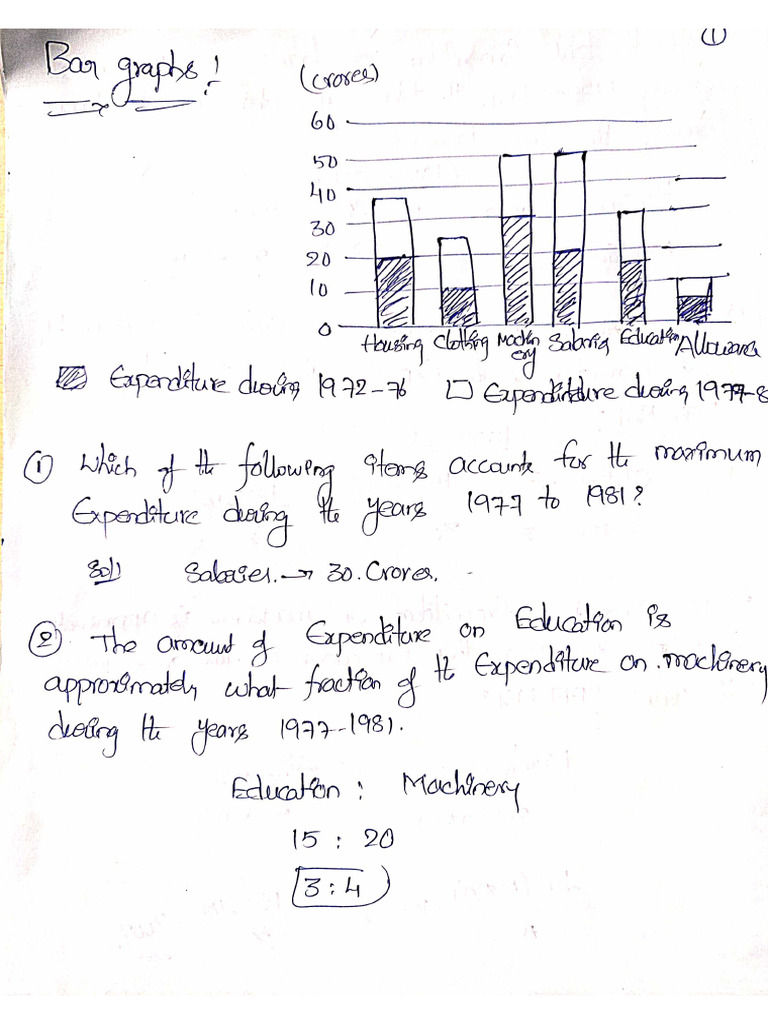 ①
Bar graphs!
(crores)
60
50
40
30
20
10
0
Housing Clothing Machinery Salaries Education Allowance
Expenditure during 1972-76 Expenditure during 1977-8
① Which of the following items accounts for the maximum
Expenditure during the years 1977 to 1981?
Sol) Salaries → 30. Crores.
② The amount of Expenditure on Education is
approximately what fraction of the Expenditure on machinery
during the years 1977-1981.
Education : Machinery
15 : 20
3:4